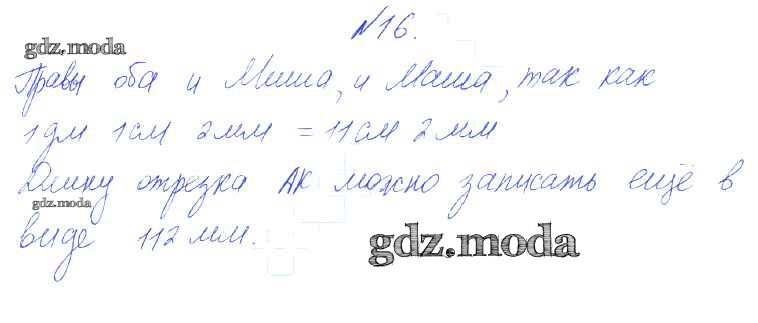 №16.
gdz.moda
Правы оба и Миша, и Маша, так как
1дм 1см 2мм = 11см 2мм
Длину отрезка АК можно записать ещё в
gdz.moda
виде 112мм.
gdz.moda